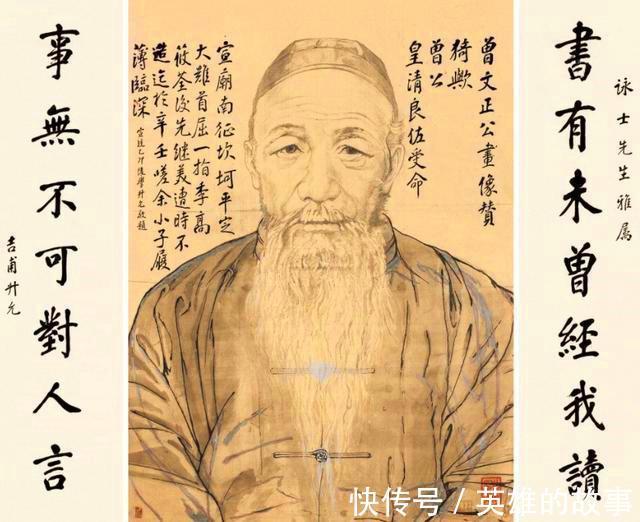 詠士先生雅屬
書有未曾經我讀
曾文正公畫像贊
猗歟
曾公
皇清良佐受命
宣廟南征坎坷平定
大難首屈一指李高
筱荃後先繼美遭時不
造迄於辛壬嗟余小子履
薄臨深
宣統乙卯後學升允敬題
事無不可對人言
吉甫升允
快传号 / 英雄的故事